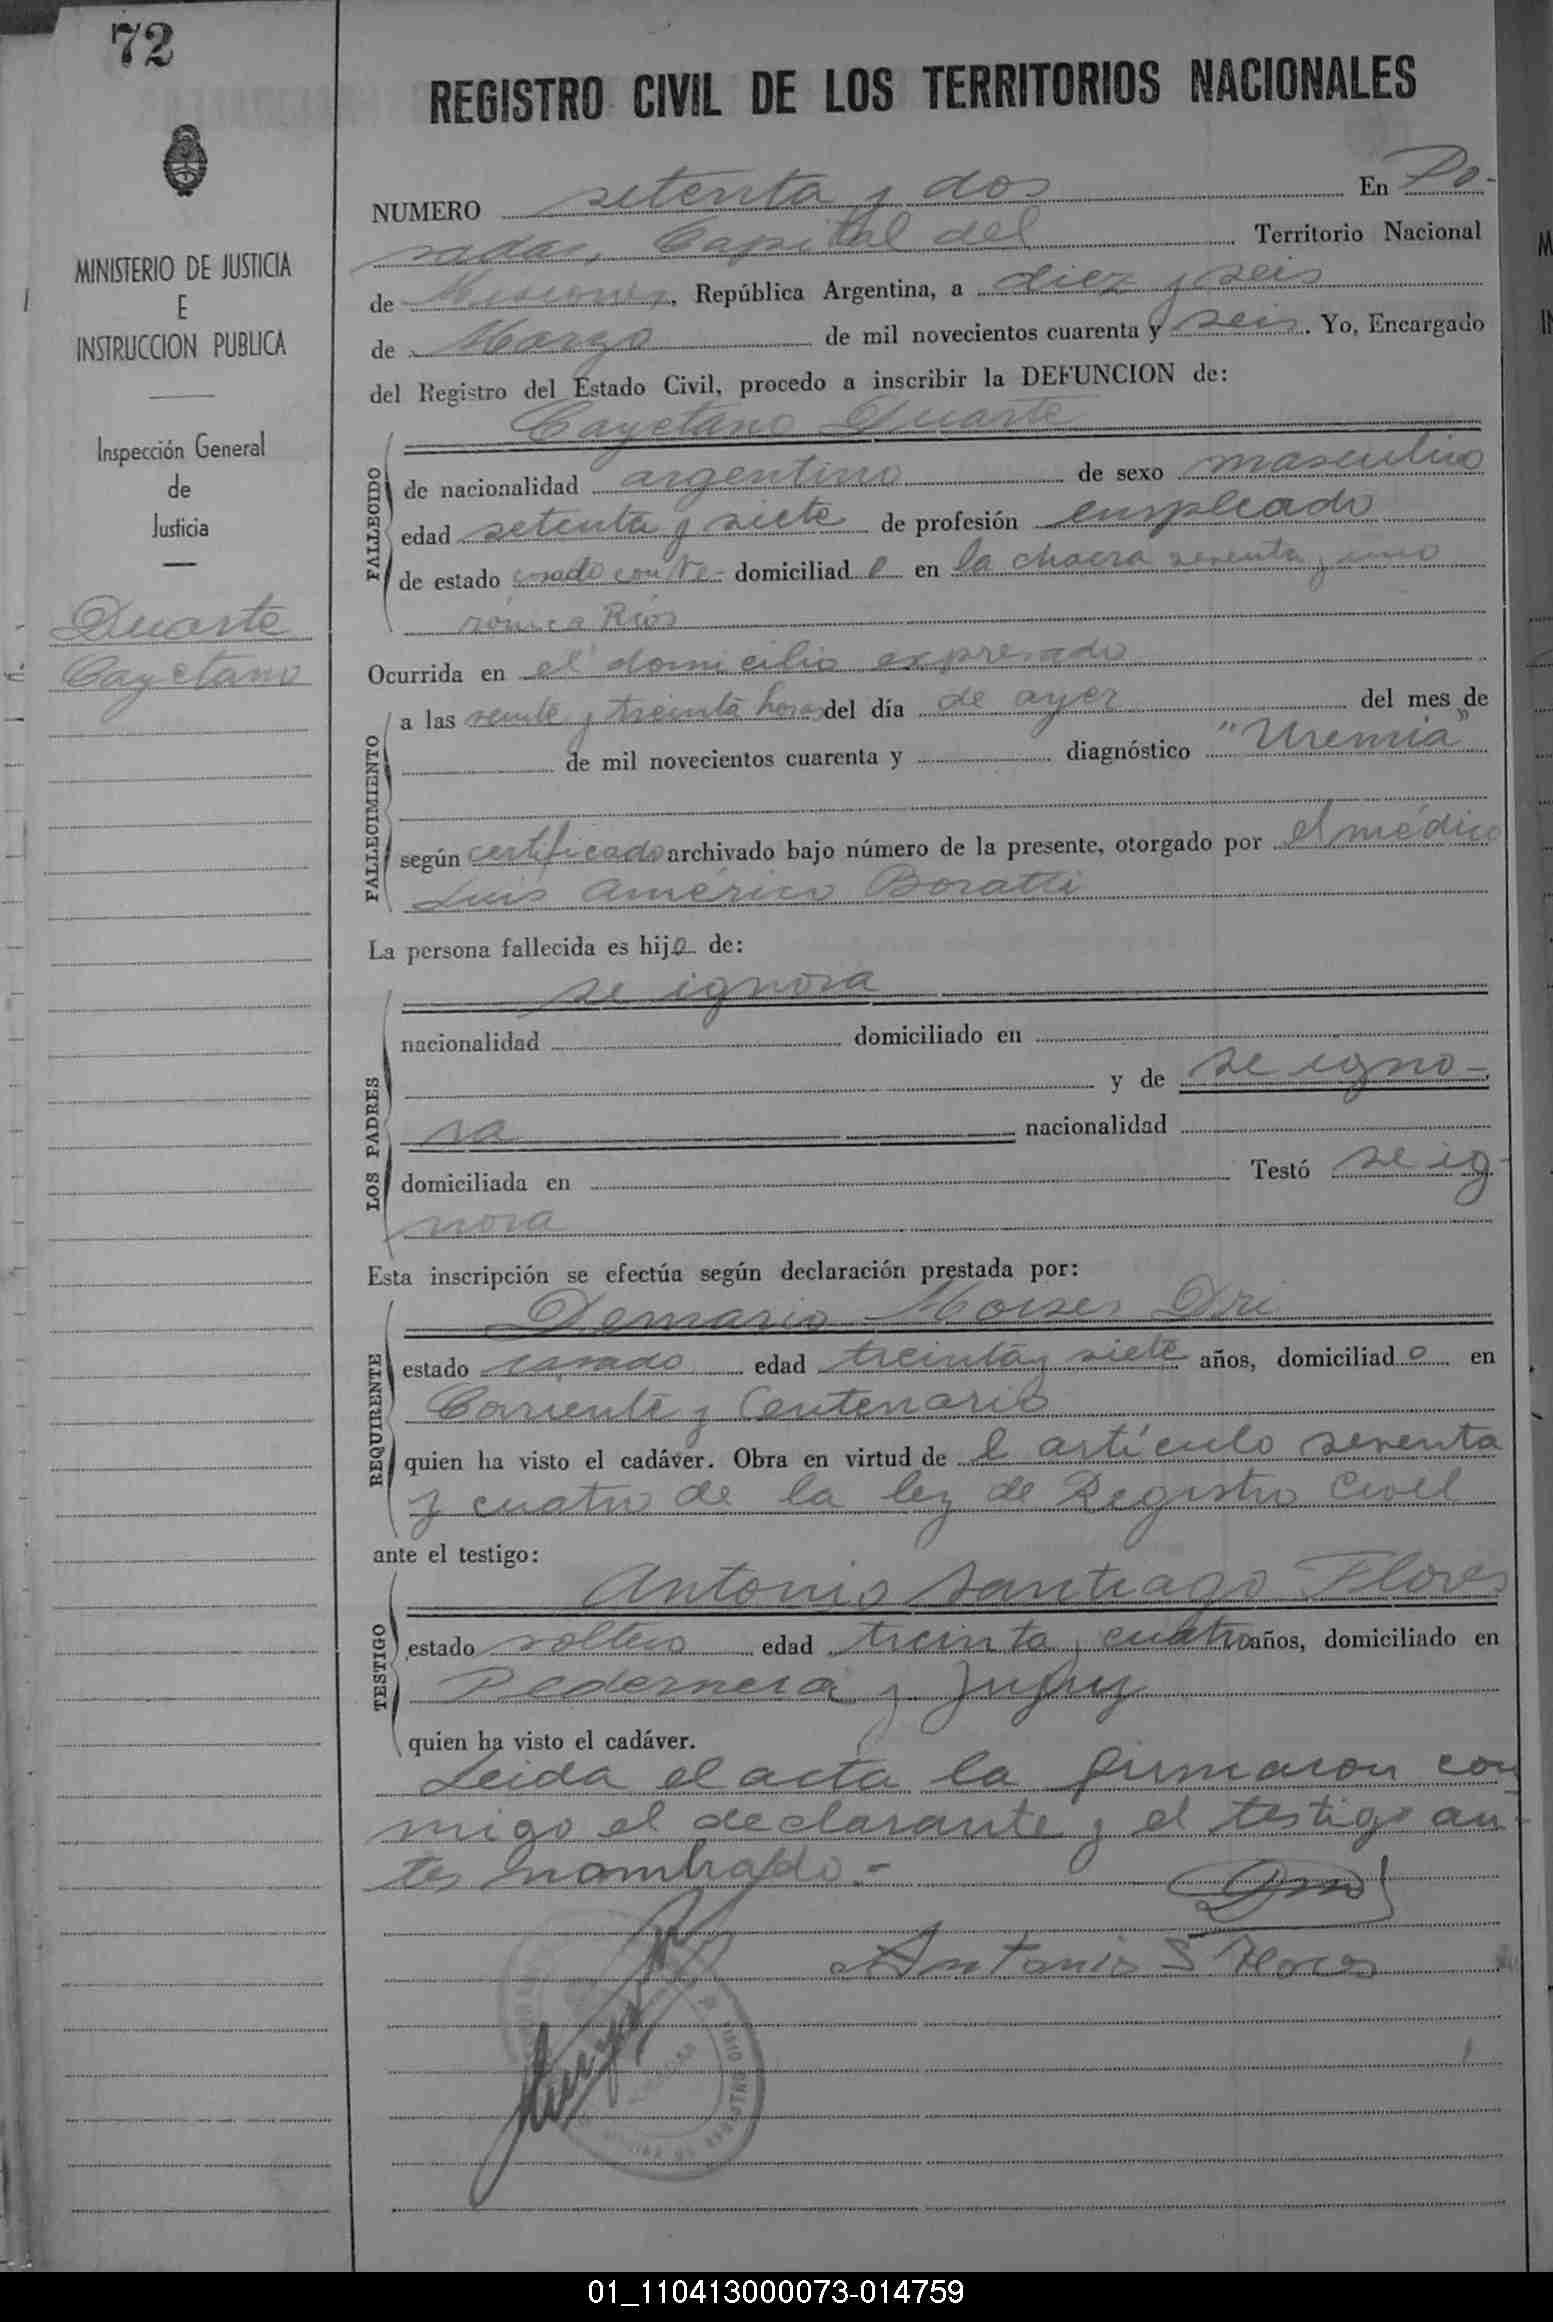 72
MINISTERIO DE JUSTICIA
E
INSTRUCCION PUBLICA
Inspección General
de
Justicia
Duarte
Cayetano
REGISTRO CIVIL DE LOS TERRITORIOS NACIONALES
NUMERO setenta y dos En Po-
sadas, Capital del Territorio Nacional
de Misiones, República Argentina, a diez y seis
de Marzo de mil novecientos cuarenta y seis. Yo, Encargado
del Registro del Estado Civil, procedo a inscribir la DEFUNCION de:
Cayetano Duarte
FALLECIDO
de nacionalidad argentino de sexo masculino
edad setenta y siete de profesión empleado
de estado casado con Ve- domiciliad o en la chacra sesenta y uno
rónica Ríos
Ocurrida en el domicilio expresado
FALLECIMIENTO
a las veinte y treinta horas del día de ayer del mes de
de mil novecientos cuarenta y diagnóstico "Uremia"
según certificado archivado bajo número de la presente, otorgado por el médico
Luis Américo Boratti
La persona fallecida es hijo de:
LOS PADRES
se ignora
nacionalidad domiciliado en
y de se igno-
ra nacionalidad
domiciliada en Testó se ig-
nora
Esta inscripción se efectúa según declaración prestada por:
REQUIRENTE
Demario Moises Dri
estado casado edad treinta y siete años, domiciliad o en
Corriente y Centenario
quien ha visto el cadáver. Obra en virtud de l artículo sesenta
y cuatro de la ley de Registro Civil
ante el testigo:
TESTIGO
Antonio Santiago Flores
estado soltero edad treinta y cuatro años, domiciliado en
Pedernera y Jujuy
quien ha visto el cadáver.
Leida el acta la firmaron con
migo el declarante y el testigo an-
tes nombrado.-
Antonio S Flores
01_110413000073-014759